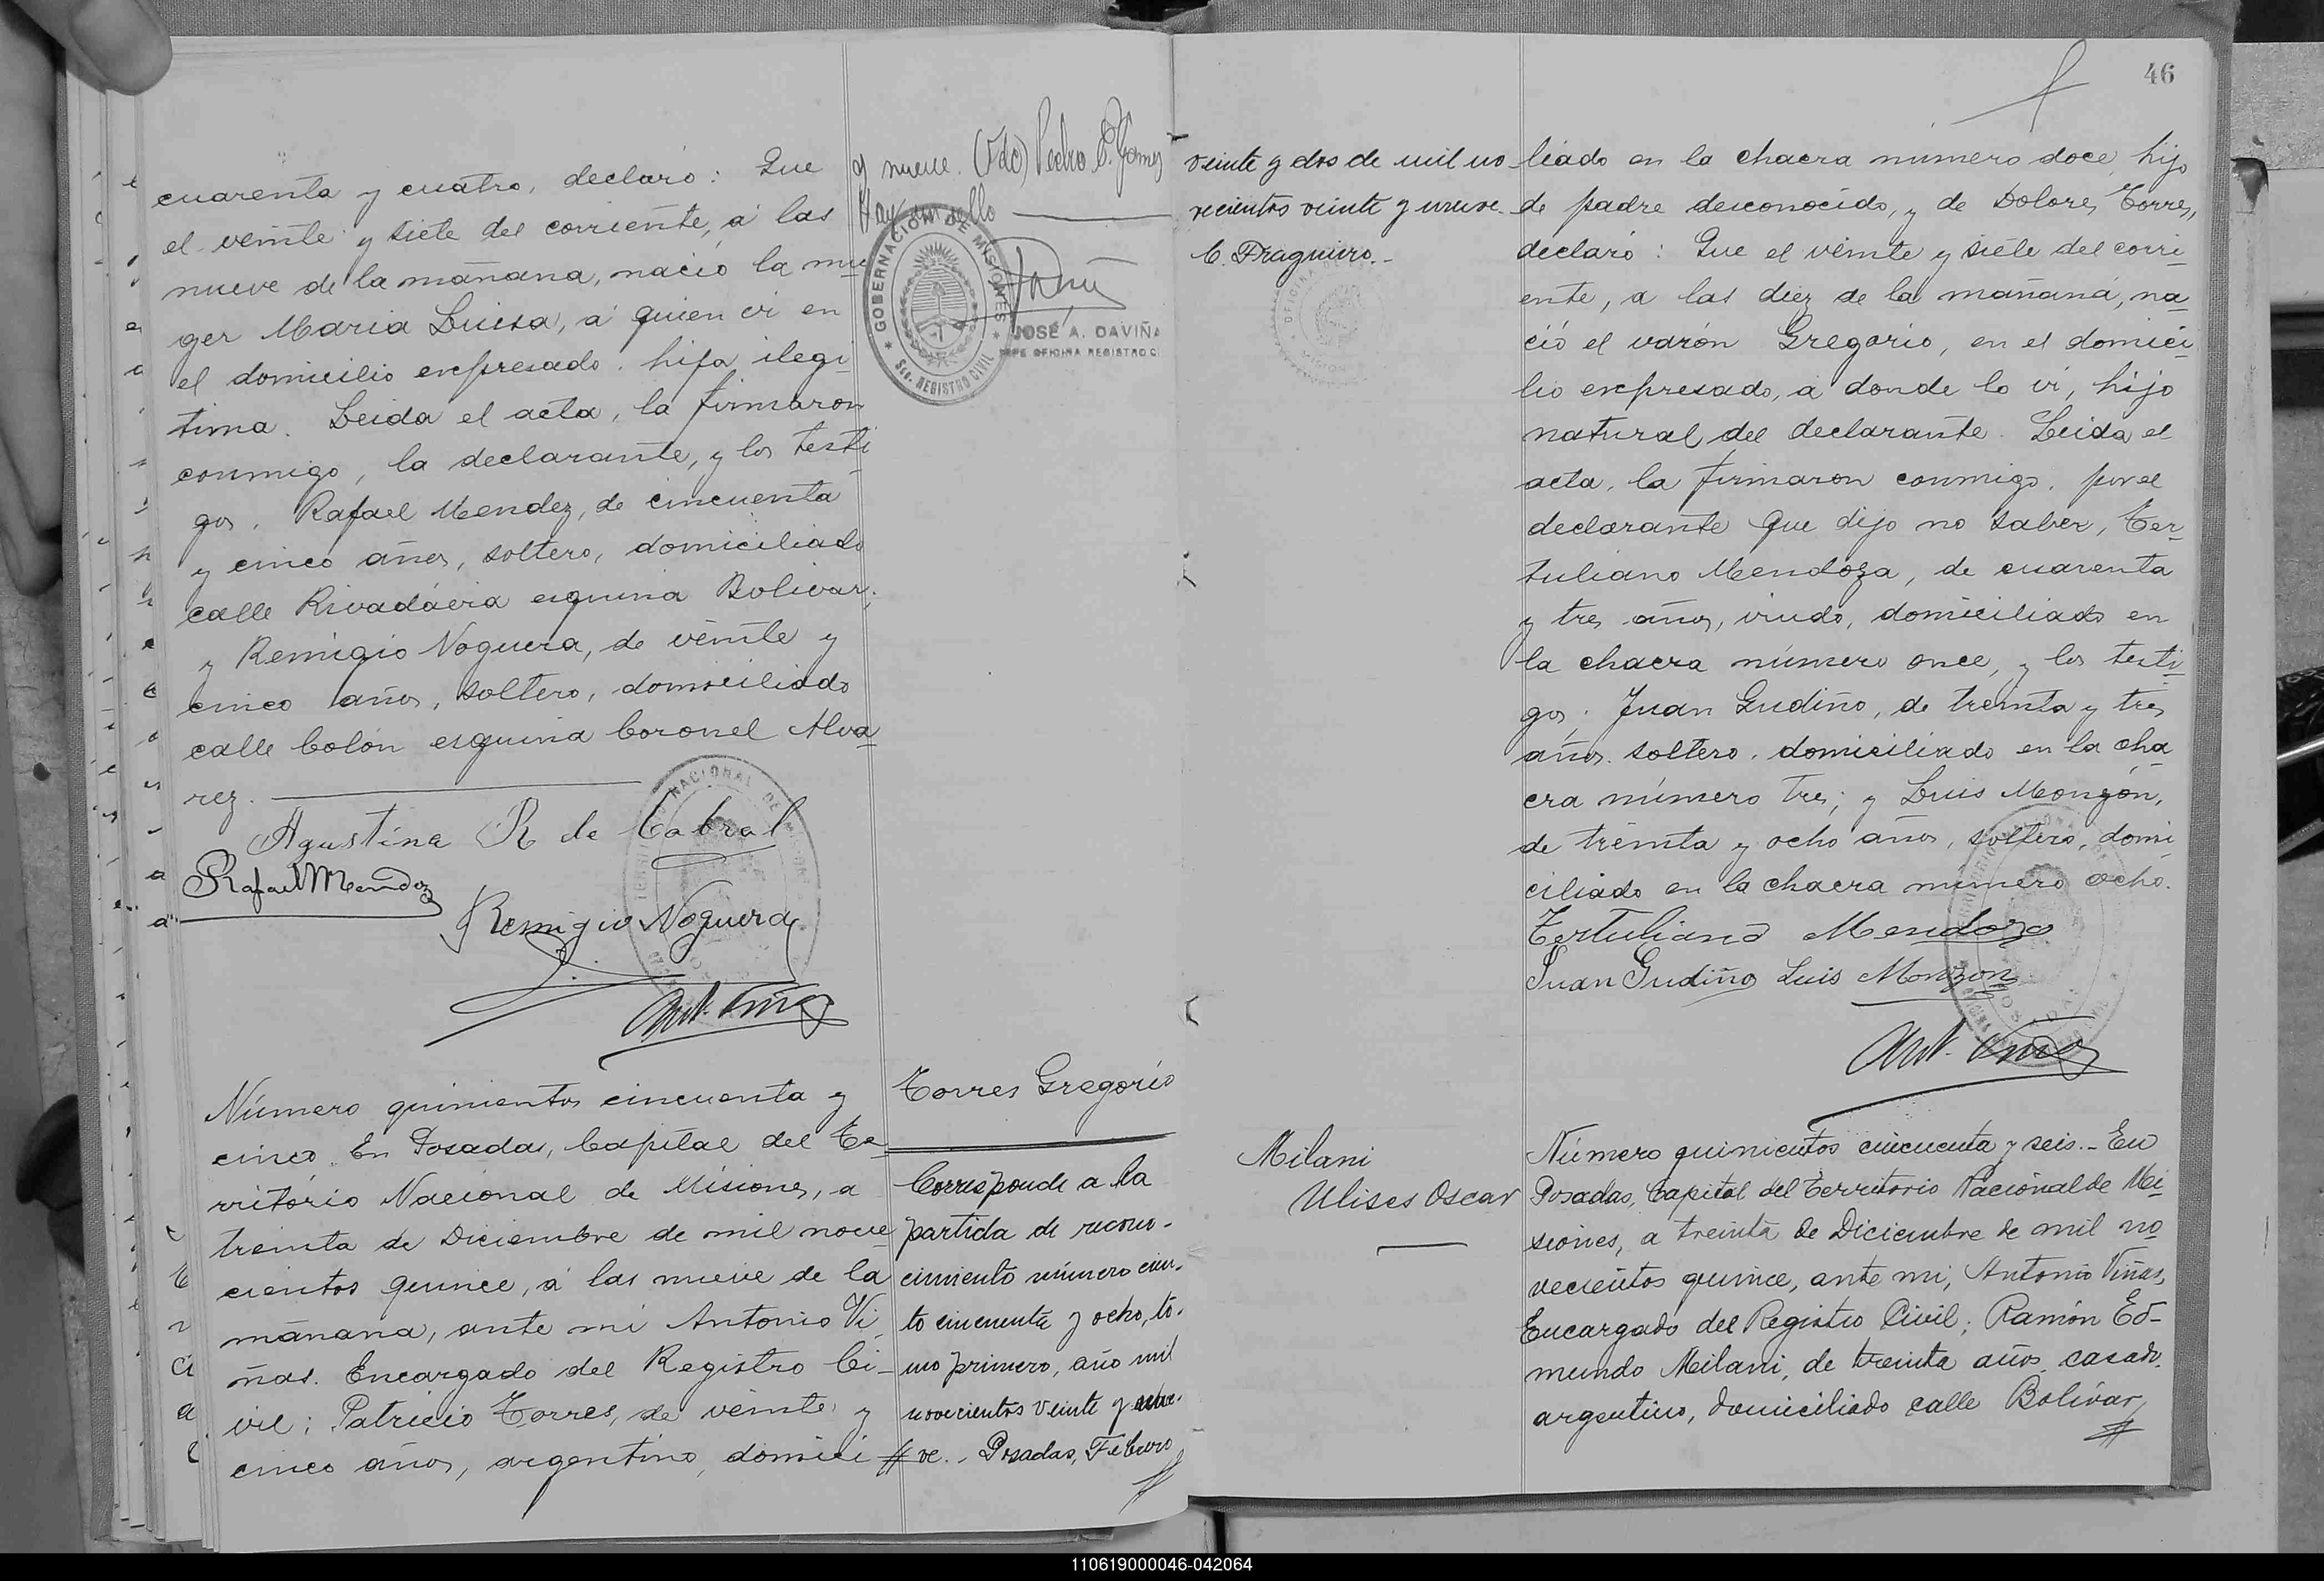 cuarenta y cuatro, declaró: Que
el veinte y siete del corriente, a las
nueve de la mañana, nació la mu
ger Maria Luisa, a quien vi en
el domicilio expresado, hija ilegi
tima. Leida el acta, la firmaron
conmigo, la declarante, y los testi
gos, Rafael Mendez, de cincuenta
y cinco años, soltero, domiciliado
calle Rivadavia esquina Bolivar;
y Remigio Noguera, de veinte y
cinco años, soltero, domiciliado
calle Colón esquina Coronel Alva
rez.
Agustina R de Cabral
Rafael Mendez
Remigio Noguera
Ant. Viñas
y nueve. (Fdo) Pedro
Hay un sello
GOBERNACIÓN DE MISIONES
Sec. REGISTRO CIVIL
JOSÉ A. DAVIÑA
JEFE OFICINA REGISTRO C
Número quinientos cincuenta y
cinco. En Posadas, Capital del Te
rritorio Nacional de Misiones, a
treinta de Diciembre de mil nove
cientos quince, a las nueve de la
mañana, ante mi Antonio Vi
ñas. Encargado del Registro Ci-
vil; Patricio Torres, de veinte y
cinco años, argentino, domici
Torres Gregorio
Corresponde a la
partida de recono-
cimiento número cien-
to cincuenta y ocho, to-
mo primero, año mil
novecientos veinte y nue-
ve. - Posadas, Febrero
46
veinte y dos de mil no-
vecientos veinte y nueve.
C. Fragueiro.-
liado en la chacra número doce, hijo
de padre desconocido, y de Dolores Torres,
declaró: Que el veinte y siete del corri
ente, a las diez de la mañana, na
ció el varón Gregorio, en el domici
lio expresado, a donde lo vi, hijo
natural del declarante. Leida el
acta, la firmaron conmigo, por el
declarante que dijo no saber, Ter-
tuliano Mendoza, de cuarenta
y tres años, viudo, domiciliado en
la chacra número once, y los testi
gos, Juan Gudiño, de treinta y tres
años, soltero, domiciliado en la cha
cra número tres; y Luis Monzón,
de treinta y ocho años, soltero, domi
ciliado en la chacra número ocho.
Tertuliano Mendoza
Juan Gudiño Luis Monzon
Ant. Viñas
Milani
Ulises Oscar
Número quinientos cincuenta y seis.- En
Posadas, Capital del Territorio Nacional de Mi
siones, a treinta de Diciembre de mil no
vecientos quince, ante mi, Antonio Viñas,
Encargado del Registro Civil; Ramón Ed-
mundo Milani, de treinta años, casado,
argentino, domiciliado calle Bolívar,
110619000046-042064